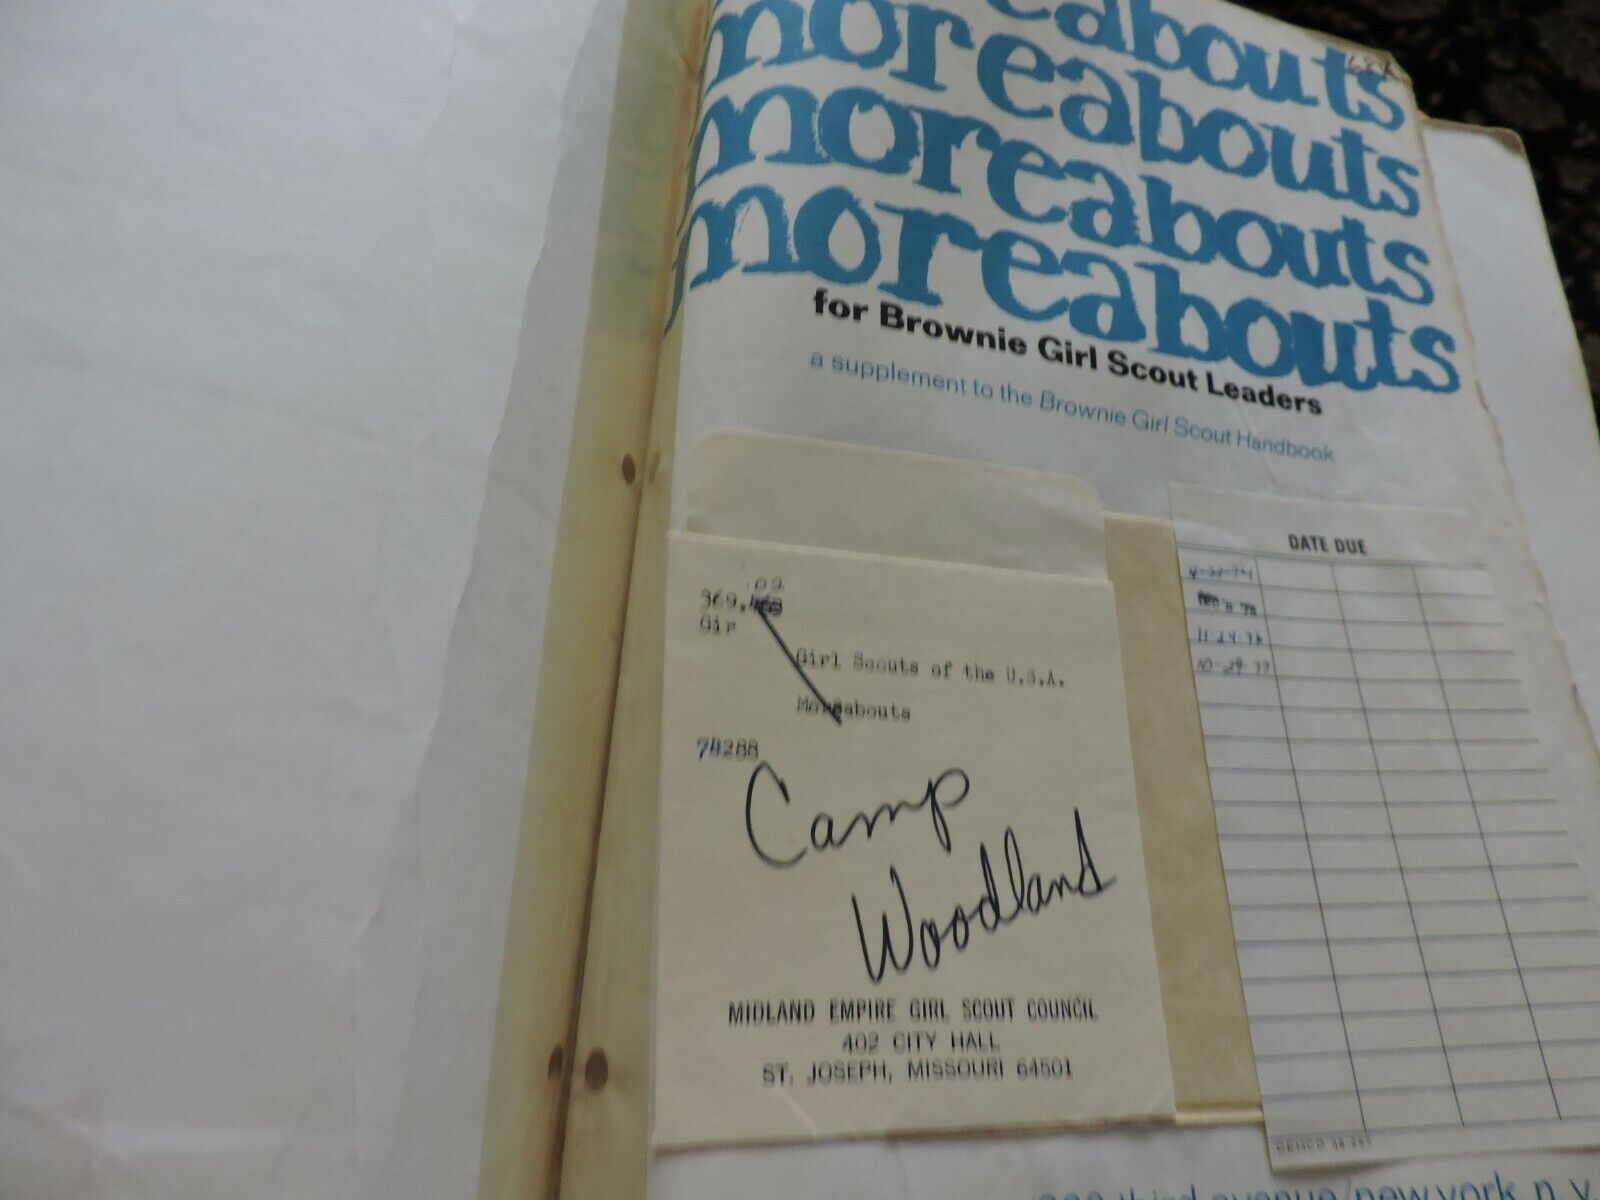 moreabouts
moreabouts
moreabouts
for Brownie Girl Scout Leaders
a supplement to the Brownie Girl Scout Handbook
DATE DUE
4-21-74
11-24-76
10-29-77
.02
369.
Gir
Girl Scouts of the U.S.A.
Moreabouts
74288
Camp
Woodland
MIDLAND EMPIRE GIRL SCOUT COUNCIL
402 CITY HALL
ST. JOSEPH, MISSOURI 64501
third avenue/new york, n.y.